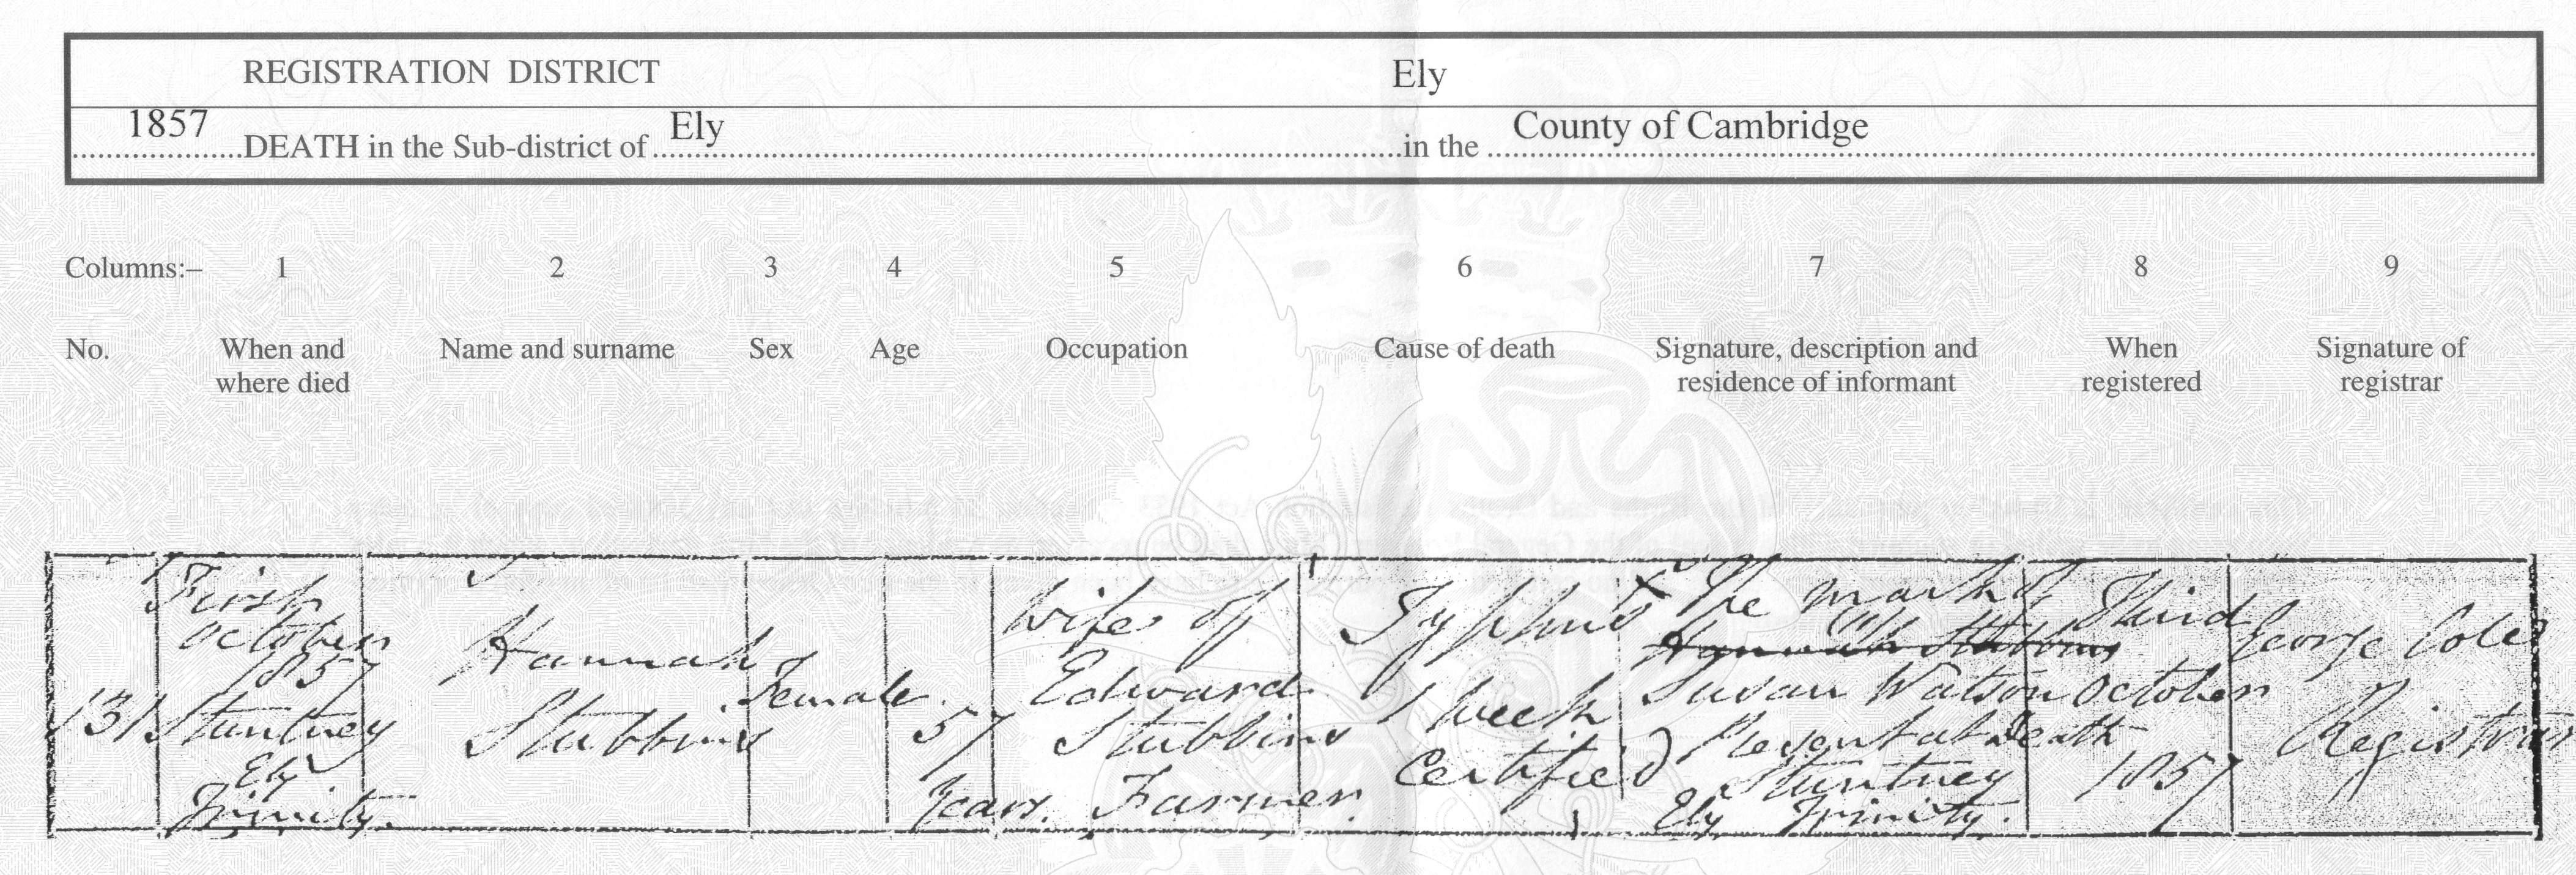 REGISTRATION DISTRICT Ely
1857 DEATH in the Sub-district of Ely in the County of Cambridge
Columns:– 1 2 3 4 5 6 7 8 9
No. When and where died Name and surname Sex Age Occupation Cause of death Signature, description and residence of informant When registered Signature of registrar
131
First
October
1857
Stuntney
Ely
Trinity.
Hannah
Stubbins
Female.
57
Years.
Wife of
Edward
Stubbins
Farmer.
Typhus
1 Week
Certified
X The mark of
Hannah Stubbins
Susan Watson
Present at Death
Stuntney
Ely Trinity.
Third
October
1857
George Coles
Registrar